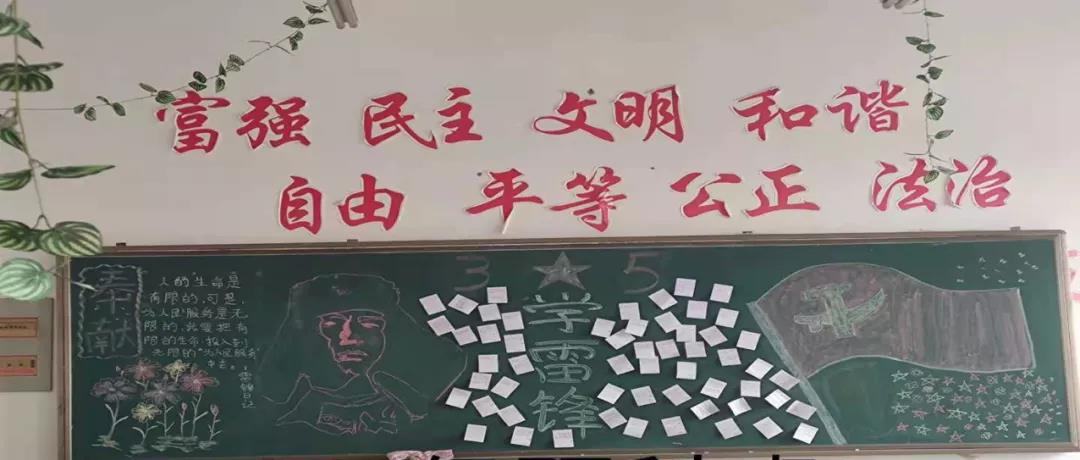 富强 民主 文明 和谐
自由 平等 公正 法治
奉献
人的生命是
有限的,可是,
为人民服务是无
限的,我要把有
限的生命,投入到
无限的“为人民服务”
中去。
雷锋日记
3 ★ 5
学雷锋